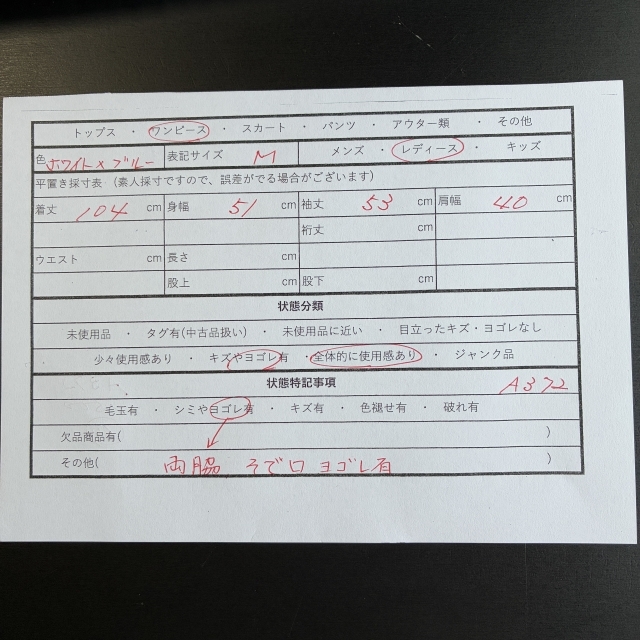 トップス ・ ワンピース ・ スカート ・ パンツ ・ アウター類 ・ その他
色 ホワイト×ブルー 表記サイズ M メンズ ・ レディース ・ キッズ
平置き採寸表 (素人採寸ですので、誤差がでる場合がございます)
着丈 104 cm 身幅 51 cm 袖丈 53 cm 肩幅 40 cm
裄丈 cm
ウエスト cm 長さ cm
股上 cm 股下 cm
状態分類
未使用品 ・ タグ有(中古品扱い) ・ 未使用品に近い ・ 目立ったキズ・ヨゴレなし
少々使用感あり ・ キズやヨゴレ有 ・ 全体的に使用感あり ・ ジャンク品
状態特記事項 A372
毛玉有 ・ シミやヨゴレ有 ・ キズ有 ・ 色褪せ有 ・ 破れ有
欠品商品有( )
その他( 両脇 そで口 ヨゴレ有 )